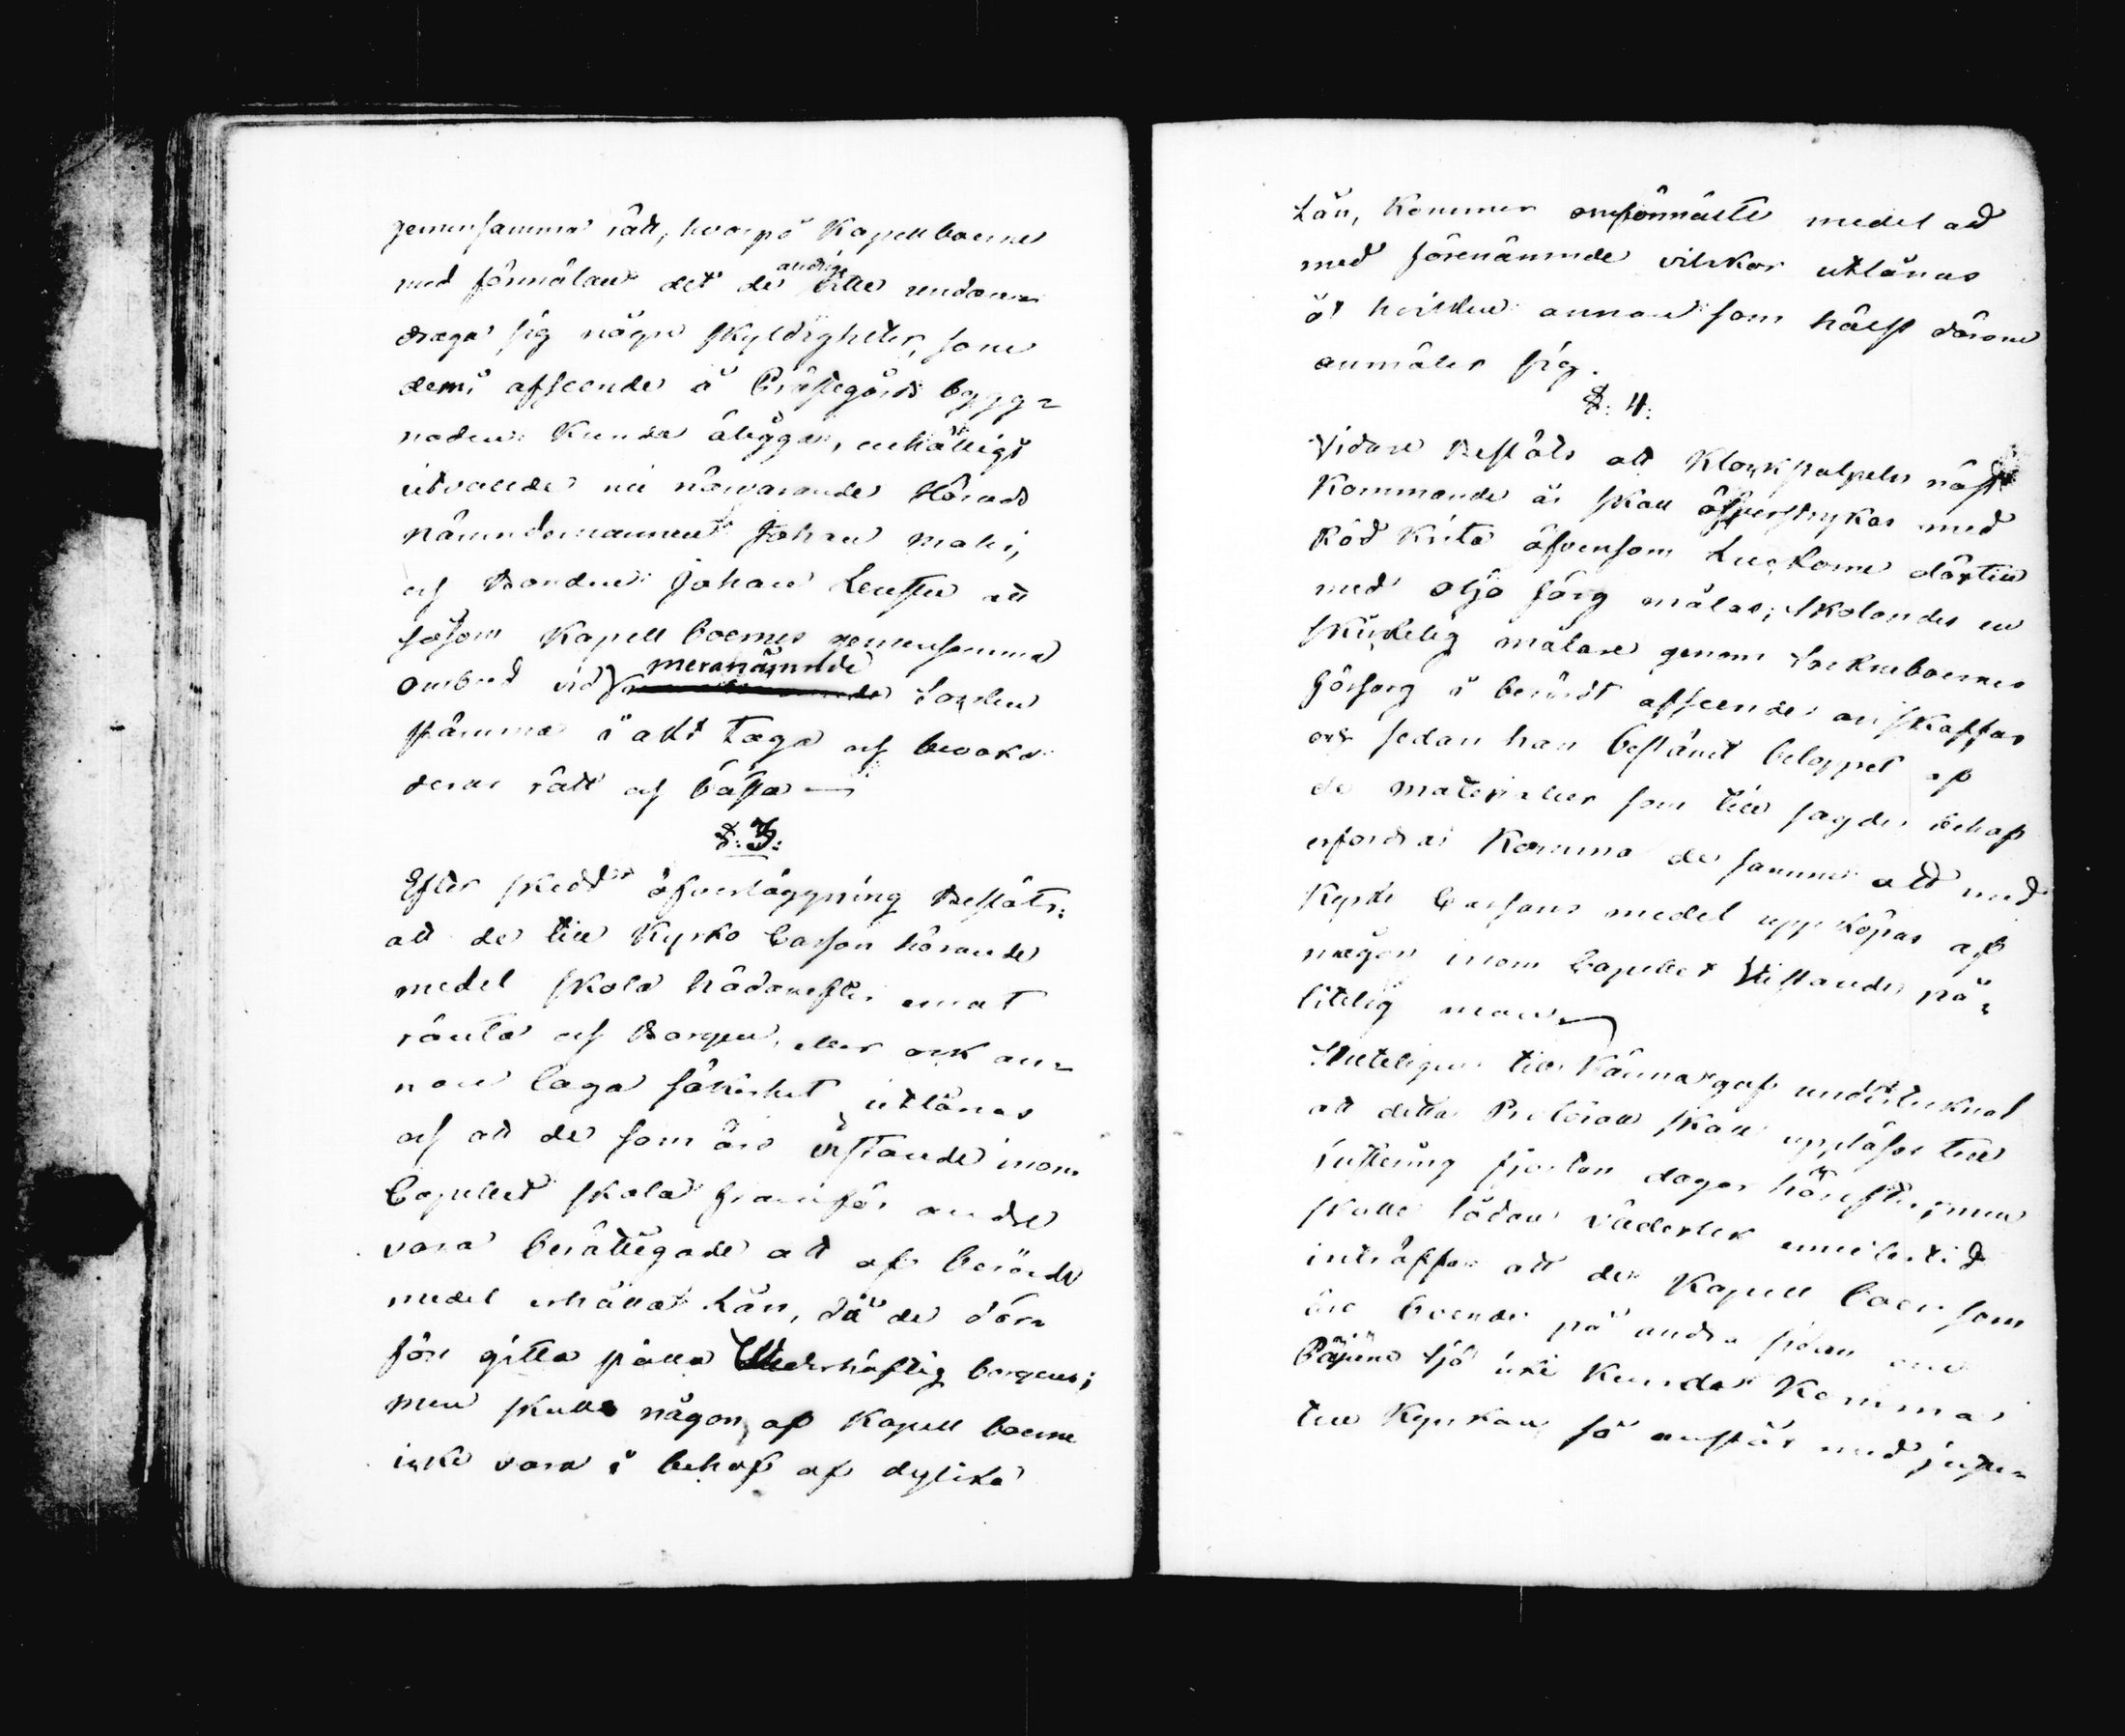 gemensamma rätt, hvarpå Kapellboerne
med förmälan det de aldrig ville undan
draga sig några skyldigheter, som
dem i afseende å Prästegårds bygg-
naden kunde åläggas, enhälligt
utvalde nu närvarande Härads
Nämndemannen Johan Mali,
och Bonden Johan Leustu att
såsom Kapellboernes gemensamma
ombud vid meranämnde Socken
stämma i akt taga och bevaka
deras rätt och bästa
§. 3:
Efter skedd öfverläggning Beslöts:
att de till Kyrko Cassan hörande
medel skola hädanefter emot
ränta och Borgen, eller ock an-
nan laga säkerhet utlånas
och att de som äro bestående inom
Capellet skola framför andre
vara berättigade att af berörde
medel erhålla Lån, då de där-
före gitta ställa Vederhäftig borgen;
men skulle någon af Kapell boerne
icke vara i behof af dylika
Lån, Kommer omförmälte medel att
med förenämnde vilkor utlånas
åt hvilken annan som hälst därom
anmäler sig.
§. 4:
Vidare Beslöts att Klockstapeln näst
Kommande år skall öfverstrykas med
Röd Krita äfvensom Luckorne därtill
med olje färg målas; skolandes en
skickelig målare genom Sockneboernes
försorg i berördt afseende anskaffas
och sedan han bestämt beloppet af
de materialier som till sagde behof
erfordras Komma de samma att med
Kyrko Cassans medel uppköpas af
någon inom Capellet Vistande på-
litelig man
Sluteligen till Känna gafs undertecknad
att detta Protocoll skall uppläsas till
justering fjorton dagar härefter; men
skulle sådan väderlek emedlertid
inträffa att de Kapell boer som
äro boende på andra sidan om
Päjäne sjö icke kunde Komma
till Kyrkan så anstår med juste-